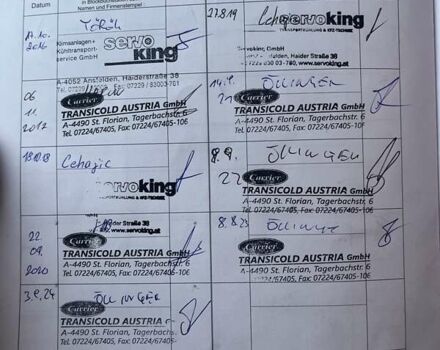 in Blockbuchstaben
Datum
Namen und Firmenstempel
17.10.
2016
Klimaanlagen+
Kühltransport-
service GmbH
servo
king
A-4052 Ansfelden, Haiderstraße 38
Tel. 07229 /
/ 83000-701
06
11.
2017
Carrier
TRANSICOLD AUSTRIA GmbH
A-4490 St. Florian, Tagerbachstr. 6
Tel. 07224/67405, Fax: 07224/67405-106
Cehajic
servoking
TRANSPORTKÜHLUNG & KFZ-TECHNIK
Haider Straße 38
www.servoking.at
22
09.
2020
Carrier
TRANSICOLD AUSTRIA GmbH
A-4490 St. Florian, Tagerbachstr. 6
Tel. 07224/67405, Fax: 07224/67405-106
24
ÖLLINGER
Carrier
TRANSICOLD AUSTRIA
A-4490 St. Florian, Tagerbachs
Tel. 07224/67405, Fax: 07224/67405
27.8.19
servoking
TRANSPORTKÜHLUNG & KFZ-TECHNIK
Servoking GmbH, Haider Straße 38
www.servoking.at
21
ÖLLINGER
Carrier
TRANSICOLD AUSTRIA GmbH
A-4490 St. Florian, Tagerbachstr. 6
Tel. 07224/67405, Fax: 07224/67405-106
8.9.
22
ÖLLINGER
Carrier
TRANSICOLD AUSTRIA GmbH
A-4490 St. Florian, Tagerbachstr. 6
Tel. 07224/67405, Fax: 07224/67405-106
8.8.23
Carrier
TRANSICOLD AUSTRIA GmbH
A-4490 St. Florian, Tagerbachstr. 6
Tel. 07224/67405, Fax: 07224/67405-106